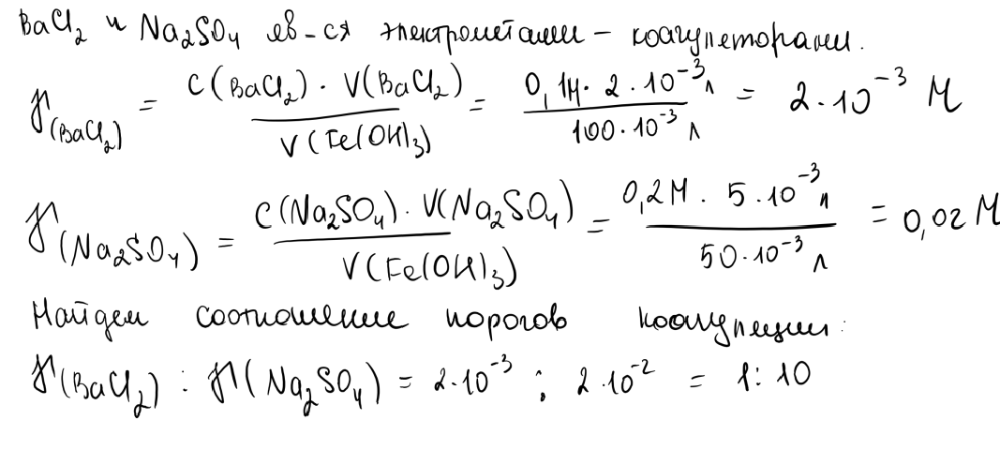 BaCl₂ и Na₂SO₄ яв-ся электролитами – коагуляторами.
γ(BaCl₂) = C(BaCl₂) · V(BaCl₂) / V(Fe(OH)₃) = 0,1М · 2 · 10⁻³ л / 100 · 10⁻³ л = 2 · 10⁻³ М
γ(Na₂SO₄) = C(Na₂SO₄) · V(Na₂SO₄) / V(Fe(OH)₃) = 0,2М · 5 · 10⁻³ л / 50 · 10⁻³ л = 0,02 М
Найдем соотношение порогов коагуляции:
γ(BaCl₂) : γ(Na₂SO₄) = 2 · 10⁻³ : 2 · 10⁻² = 1 : 10